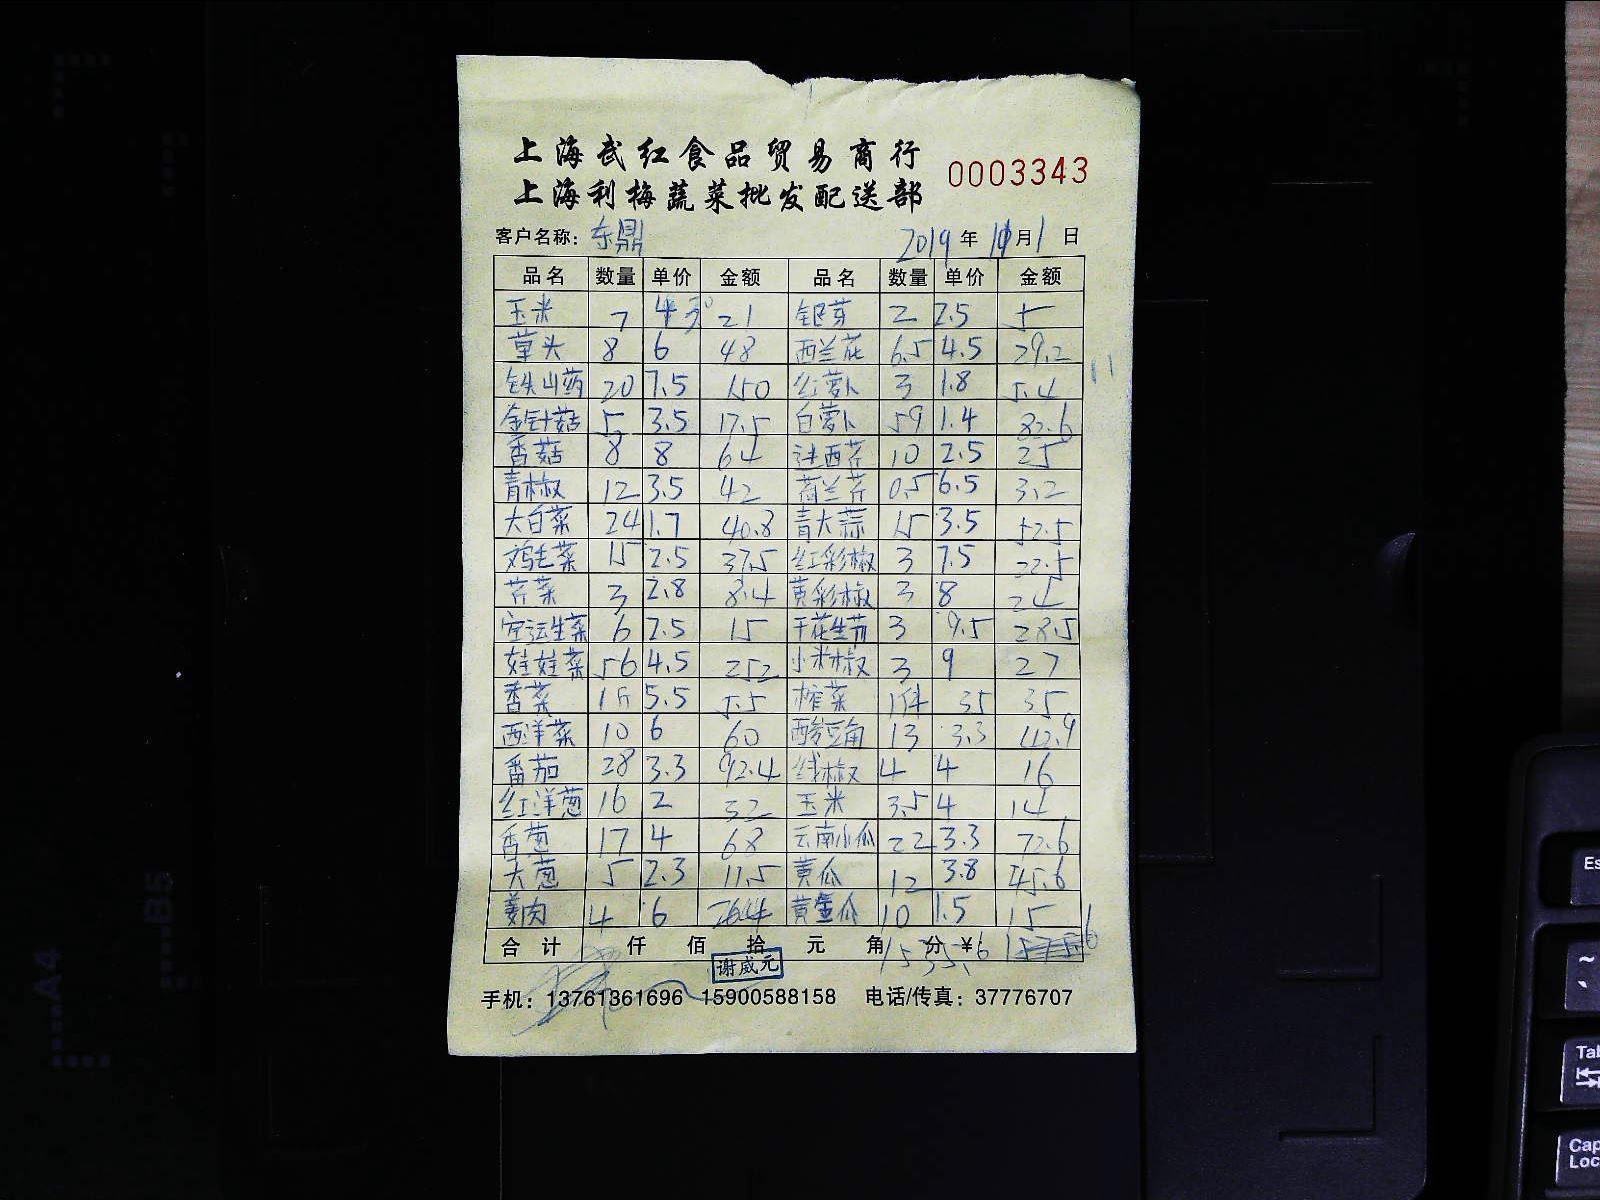 上海武红食品贸易商行
上海利梅蔬菜批发配送部
0003343
客户名称: 东鼎 2019年 月1日
品名 数量 单价 金额 品名 数量 单价 金额
玉米 7 3 21 银芽 2 2.5 5
草头 8 6 48 西兰花 6.5 4.5 29.2
铁山药 20 7.5 150 红萝卜 3 1.8 5.4
金针菇 5 3.5 17.5 白萝卜 59 1.4 82.6
香菇 8 8 64 西芹 10 2.5 25
青椒 12 3.5 42 荷兰芹 0.5 6.5 3.2
大白菜 24 1.7 40.8 青大蒜 15 3.5 52.5
鸡毛菜 15 2.5 37.5 红彩椒 3 7.5 22.5
芹菜 3 2.8 8.4 黄彩椒 3 8 24
空运生菜 6 2.5 15 干花生 3 9.5 28.5
娃娃菜 56 4.5 252 小米椒 3 9 27
香菜 1斤 5.5 5.5 榨菜 1件 35 35
西洋菜 10 6 60 酸豆角 13 3.3
番茄 28 3.3 92.4 线椒 4 4 16
红洋葱 16 2 32 玉米 3.5 4 14
香葱 17 4 68 云南小瓜 22 3.3 72.6
大葱 5 2.3 11.5 黄瓜 12 3.8 45.6
姜肉 4 6 黄金瓜 10 1.5 15
合计 仟 佰 拾 元 角 分 ¥ 1535.6
谢威元
手机: 13761361696 15900588158 电话/传真: 37776707